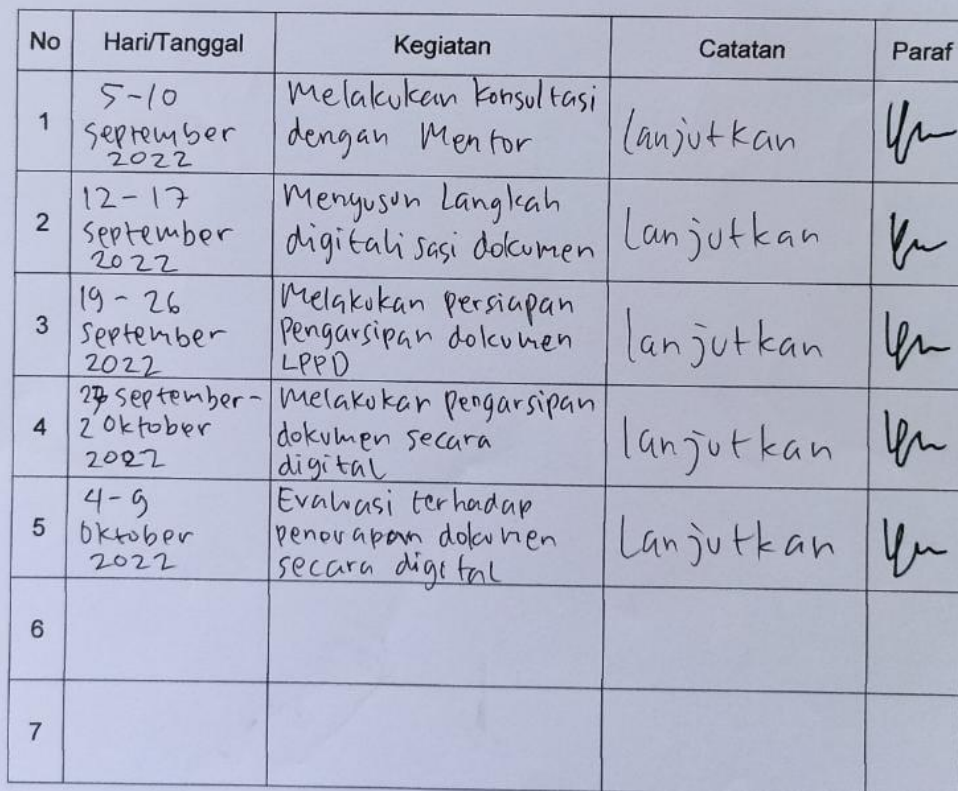 No Hari/Tanggal Kegiatan Catatan Paraf
1
5-10
September
2022
Melakukan konsultasi
dengan Mentor
lanjutkan
2
12-17
September
2022
Menyusun Langkah
digitalisasi dokumen
Lanjutkan
3
19-26
September
2022
Melakukan persiapan
Pengarsipan dokumen
LPPD
lanjutkan
4
27 September-
2 Oktober
2022
Melakukan pengarsipan
dokumen secara
digital
lanjutkan
5
4-9
Oktober
2022
Evaluasi terhadap
penerapan dokumen
secara digital
Lanjutkan
6
7